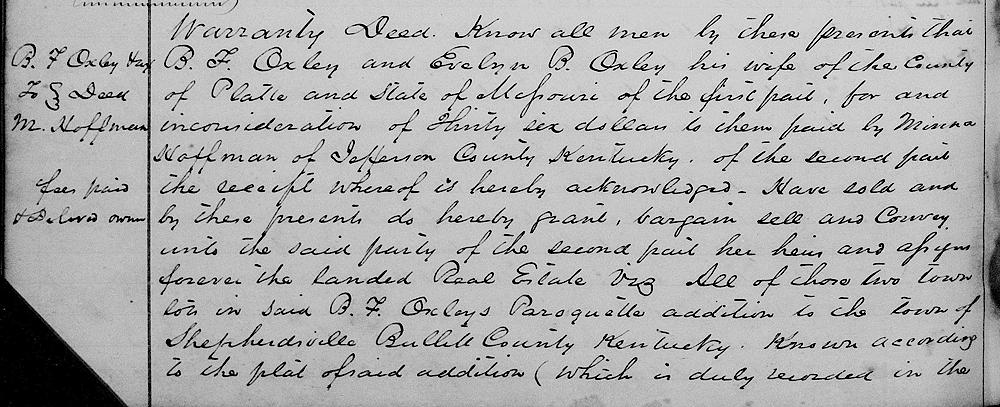 Warranty Deed. Know all men by these presents that
B. F Oxley & wf
To } Deed
M. Hoffman
fees paid
& Delivered owner
B. F. Oxley and Evelyn B. Oxley his wife of the County
of Platte and State of Missouri of the first part, for and
inconsideration of Thirty six dollars to them paid by Minna
Hoffman of Jefferson County Kentucky. of the second part
the receipt whereof is hereby acknowledged - Have sold and
by these presents do hereby grant, bargain sell and Convey
unto the said party of the second part her heirs and assigns
forever the landed Real Estate Viz All of those two town
lots in said B. F. Oxleys Paroquette addition to the town of
Shepherdsville Bullitt County Kentucky. Known according
to the plat of said addition (which is duly recorded in the